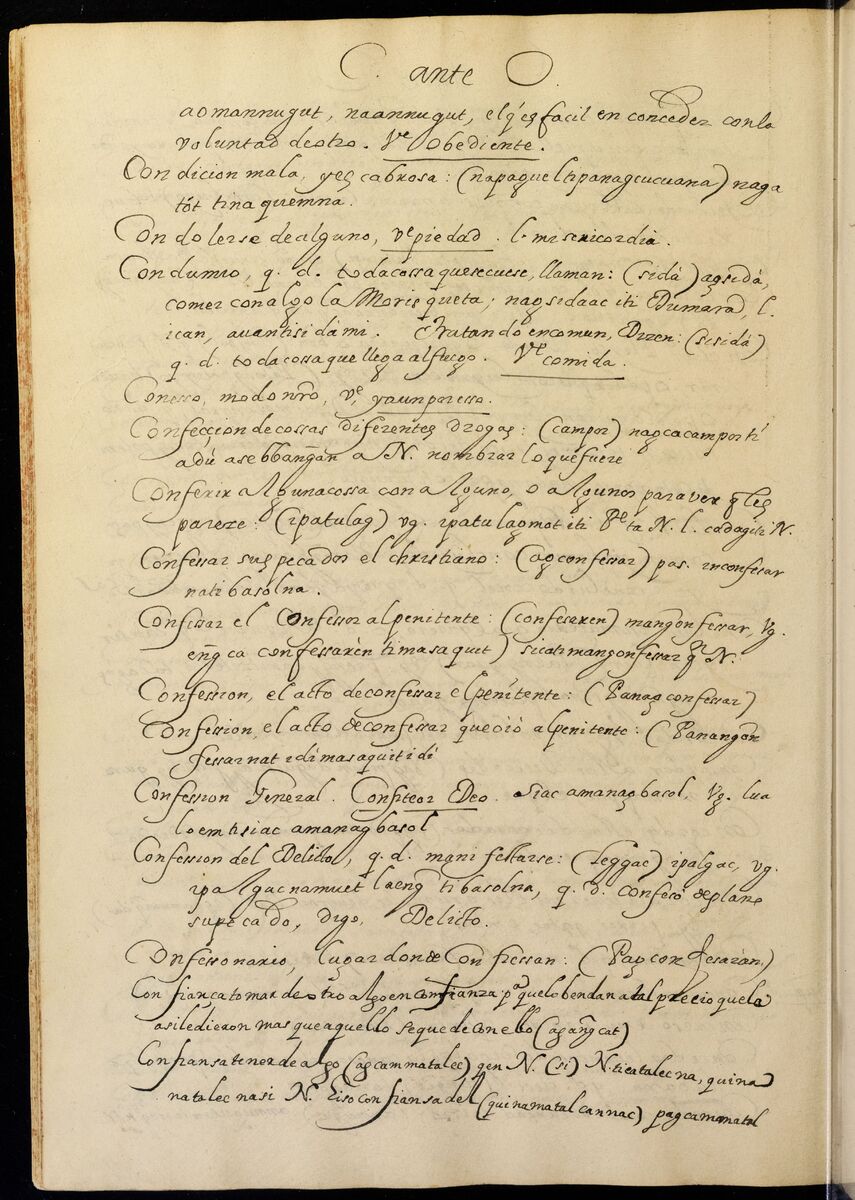 C. ante O.
aomannugut, naannugut, el q̃ es facil en conceder con la
voluntad de otro. Ve obediente.
Condicion mala, y escabrosa: (napaquel ti panagcucuana) naga
tót tinaquemna.
Condolerse de alguno, ve piedad. l. misericordia.
Condumio, q. d. toda cossa que se cuese, llaman: (sidà) agsidà,
comer con algo la Morisqueta; nagsidaac iti Dumara, l.
ican, auan ti sidà mi. Tratando en comun, Dizen: (sisidà)
q. d. toda cossa que llega al fuego. Ve comida.
Conesso, modo nr̃o, ve, ya un poresso.
Confeccion de cossas diferentes drogas: (campor) nagcacampor ti
adù a sebbang̃an a N. nombrar lo que fuere
Conferir alguna cossa con alguno, o algunos para ver q̃ les
pareze: (ipatulag) vg. ipatulagmot iti Pe ta N. l. cadagiti N.
Confessar sus pecados el christiano: (agconfessar) pas. inconfesar
na ti basolna.
Confessar el Confessor al penitente: (confesaren) mangonfessar, vg.
eng̃ca confessarèn ti masaquit) sicat imangonfessar q̃ N.
Confession, el acto de confessar el penitente: (Panagconfessar)
Confession, el acto de confessar que oió al penitente: (Panangon
fessarnat idi masaquit idi
Confession General. Confiteor Deo. Siac a managbasol, vg. lua
loem ti siac a managbasol
Confession del Delicto, q. d. manifestarse: (leggac) ipalgac, vg.
ipalgacna muet laeng̃ ti basolna, q. d. confesó de plano
su pecado, digo, Delicto.
Confessonario, lugar donde Confiessan: (Pagconfesarán)
Confianca tomar de otro algo en confianza pa. que lo bendan a tal precio que la
asi le dieron mas que aquello se quede con ello (agang̃cat)
Confiansa tener de algo (agcammatalec) qen N. (si) N. ti catalecna, quina
natalecna si N. Hiso confiansa del (quinamatalcannac) pagcammatal